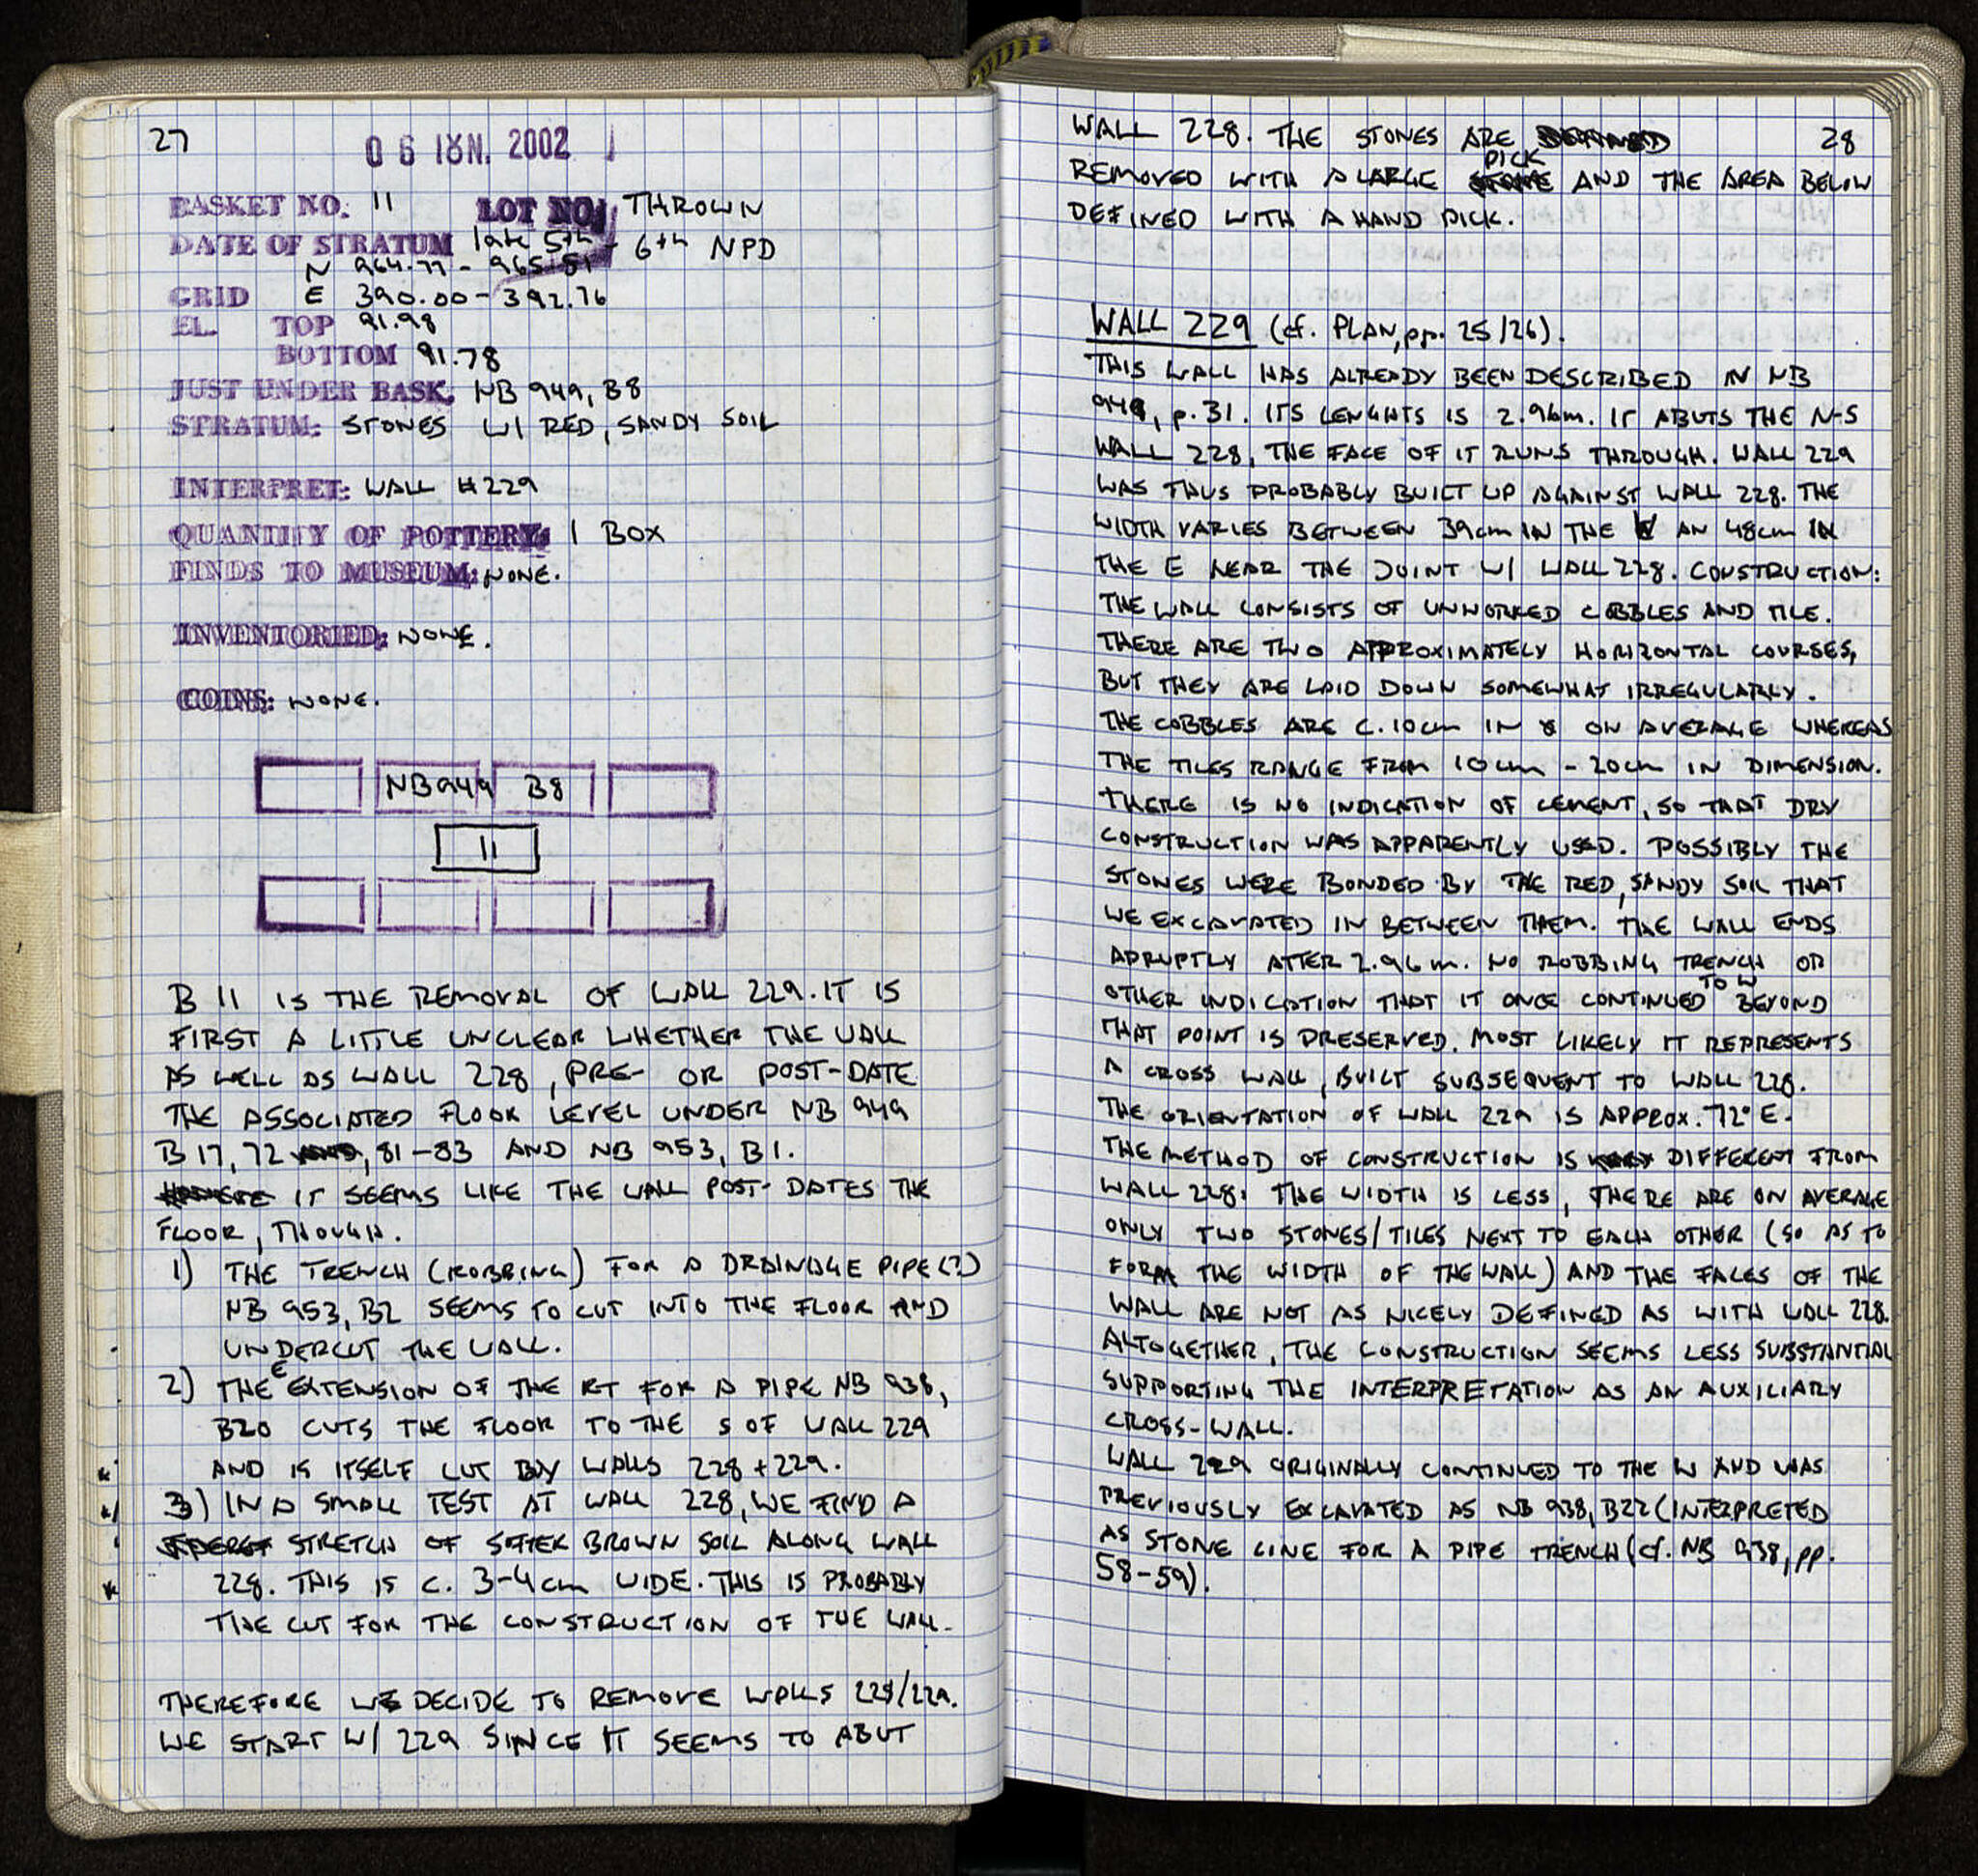 27
06 IUN. 2002
BASKET NO. 11 LOT NO. THROWN
DATE OF STRATUM late 5th - 6th NPD
N 964.77 - 965.81
GRID E 390.00 - 392.76
EL. TOP 91.98
BOTTOM 91.78
JUST UNDER BASK: NB 949, B8
STRATUM: STONES W/ RED, SANDY SOIL
INTERPRET: WALL #229
QUANTITY OF POTTERY: 1 BOX
FINDS TO MUSEUM: NONE.
INVENTORIED: NONE.
COINS: NONE.
NB949 B8
11
B 11 IS THE REMOVAL OF WALL 229. IT IS
FIRST A LITTLE UNCLEAR WHETHER THE WALL
AS WELL AS WALL 228, PRE- OR POST-DATE
THE ASSOCIATED FLOOR LEVEL UNDER NB 949
B 17, 72, 81-83 AND NB 953, B1.
IT SEEMS LIKE THE WALL POST-DATES THE
FLOOR, THOUGH.
1) THE TRENCH (ROBBING) FOR A DRAINAGE PIPE(?)
NB 953, B2 SEEMS TO CUT INTO THE FLOOR AND
UNDERCUT THE WALL.
2) THE E EXTENSION OF THE RT FOR A PIPE NB 938,
B20 CUTS THE FLOOR TO THE S OF WALL 229
AND IS ITSELF CUT BY WALLS 228 + 229.
3) IN A SMALL TEST AT WALL 228, WE FIND A
STRETCH OF SOFTER BROWN SOIL ALONG WALL
228. THIS IS C. 3-4cm WIDE. THIS IS PROBABLY
THE CUT FOR THE CONSTRUCTION OF THE WALL.
THEREFORE WE DECIDE TO REMOVE WALLS 228/229.
WE START W/ 229 SINCE IT SEEMS TO ABUT
28
WALL 228. THE STONES ARE
REMOVED WITH A LARGE PICK AND THE AREA BELOW
DEFINED WITH A HAND PICK.
WALL 229 (cf. PLAN, pp. 25/26).
THIS WALL HAS ALREADY BEEN DESCRIBED IN NB
949, p. 31. ITS LENGHTS IS 2.96m. IT ABUTS THE N-S
WALL 228, THE FACE OF IT RUNS THROUGH. WALL 229
WAS THUS PROBABLY BUILT UP AGAINST WALL 228. THE
WIDTH VARIES BETWEEN 39cm IN THE W AN 48cm IN
THE E NEAR THE JOINT W/ WALL 228. CONSTRUCTION:
THE WALL CONSISTS OF UNWORKED COBBLES AND TILE.
THERE ARE TWO APPROXIMATELY HORIZONTAL COURSES,
BUT THEY ARE LAID DOWN SOMEWHAT IRREGULARLY.
THE COBBLES ARE C. 10cm IN ø ON AVERAGE WHEREAS
THE TILES RANGE FROM 10cm - 20cm IN DIMENSION.
THERE IS NO INDICATION OF CEMENT, SO THAT DRY
CONSTRUCTION WAS APPARENTLY USED. POSSIBLY THE
STONES WERE BONDED BY THE RED, SANDY SOIL THAT
WE EXCAVATED IN BETWEEN THEM. THE WALL ENDS
APRUPTLY AFTER 2.96m. NO ROBBING TRENCH OR
OTHER INDICATION THAT IT ONCE CONTINUED TO W BEYOND
THAT POINT IS PRESERVED. MOST LIKELY IT REPRESENTS
A CROSS WALL, BUILT SUBSEQUENT TO WALL 228.
THE ORIENTATION OF WALL 229 IS APPROX. 72° E.
THE METHOD OF CONSTRUCTION IS DIFFERENT FROM
WALL 228: THE WIDTH IS LESS, THERE ARE ON AVERAGE
ONLY TWO STONES/TILES NEXT TO EACH OTHER (SO AS TO
FORM THE WIDTH OF THE WALL) AND THE FACES OF THE
WALL ARE NOT AS NICELY DEFINED AS WITH WALL 228.
ALTOGETHER, THE CONSTRUCTION SEEMS LESS SUBSTANTIAL
SUPPORTING THE INTERPRETATION AS AN AUXILIARY
CROSS-WALL.
WALL 229 ORIGINALLY CONTINUED TO THE W AND WAS
PREVIOUSLY EXCAVATED AS NB 938, B22 (INTERPRETED
AS STONE LINE FOR A PIPE TRENCH (cf. NB 938, pp.
58-59).